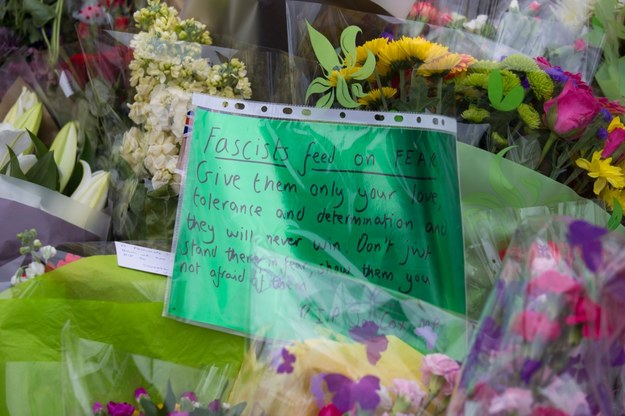 Fascists feed on FEAR
Give them only your love,
tolerance and determination and
they will never win. Don't just
stand there in fear, show them you
not afraid of them